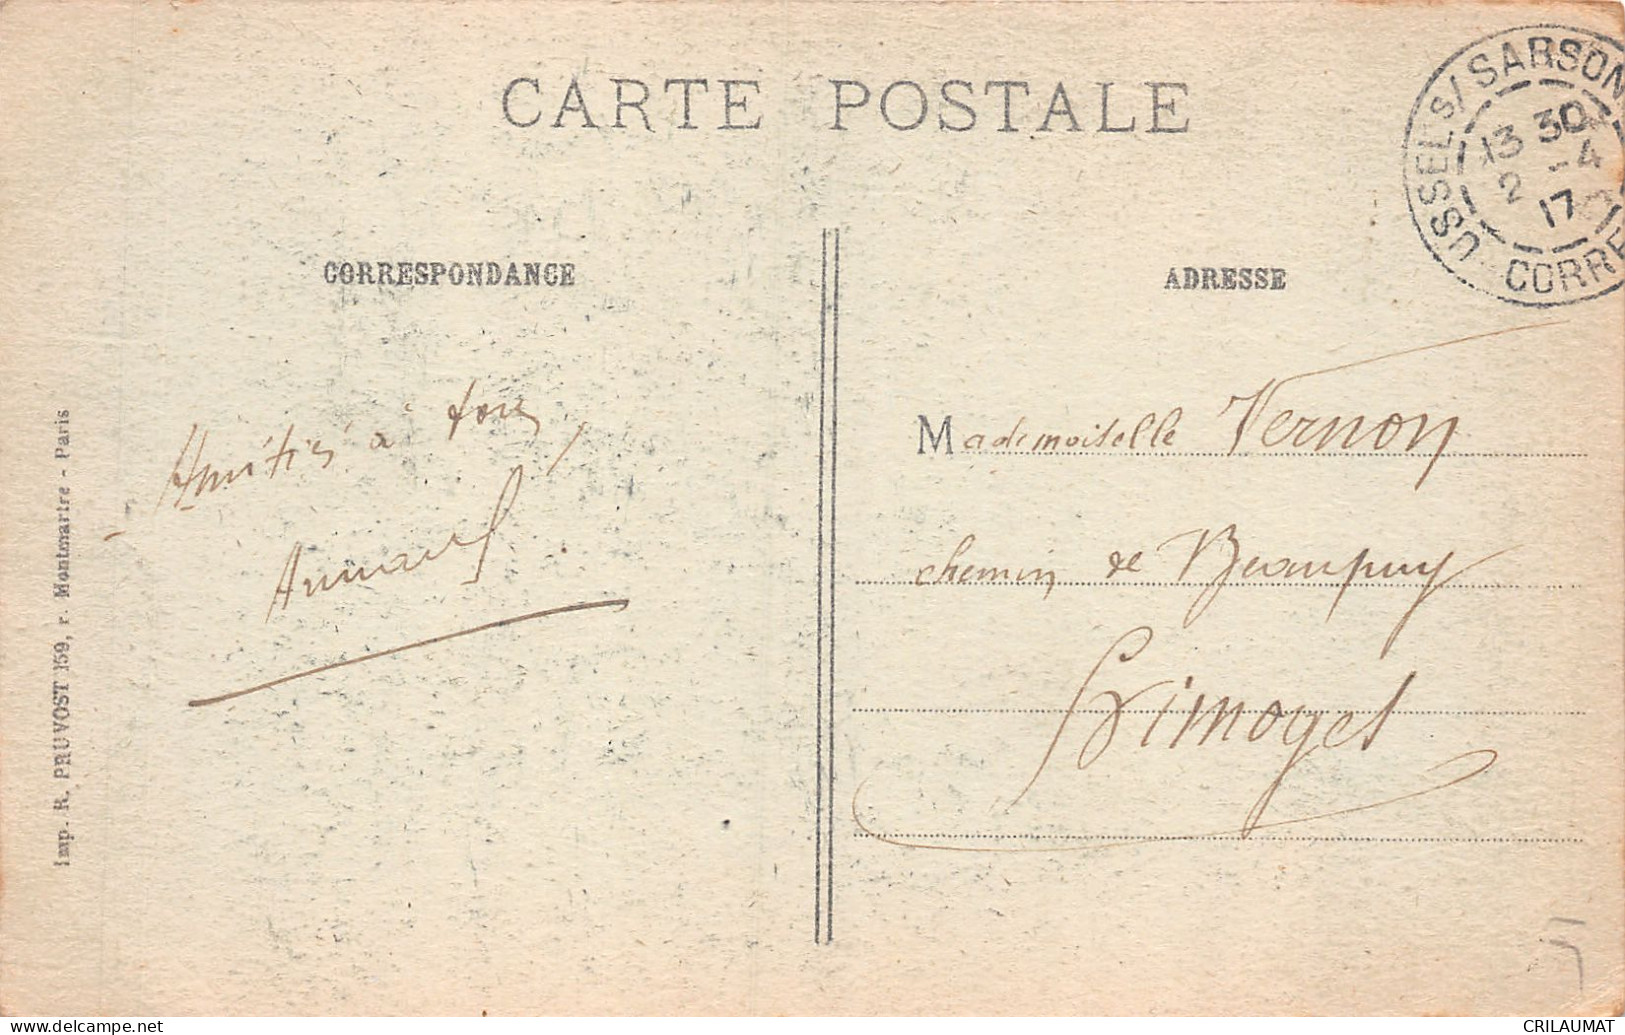 CARTE POSTALE
USSEL S/ SARSON
13 30
2 -4
17
CORRE
CORRESPONDANCE
ADRESSE
Amitiés à tous
Armand
Mademoiselle Vernon
chemin de Beaupuy
Limoges
Imp. R. PRUVOST 159, r. Montmartre - Paris
www.delcampe.net
CRILAUMAT